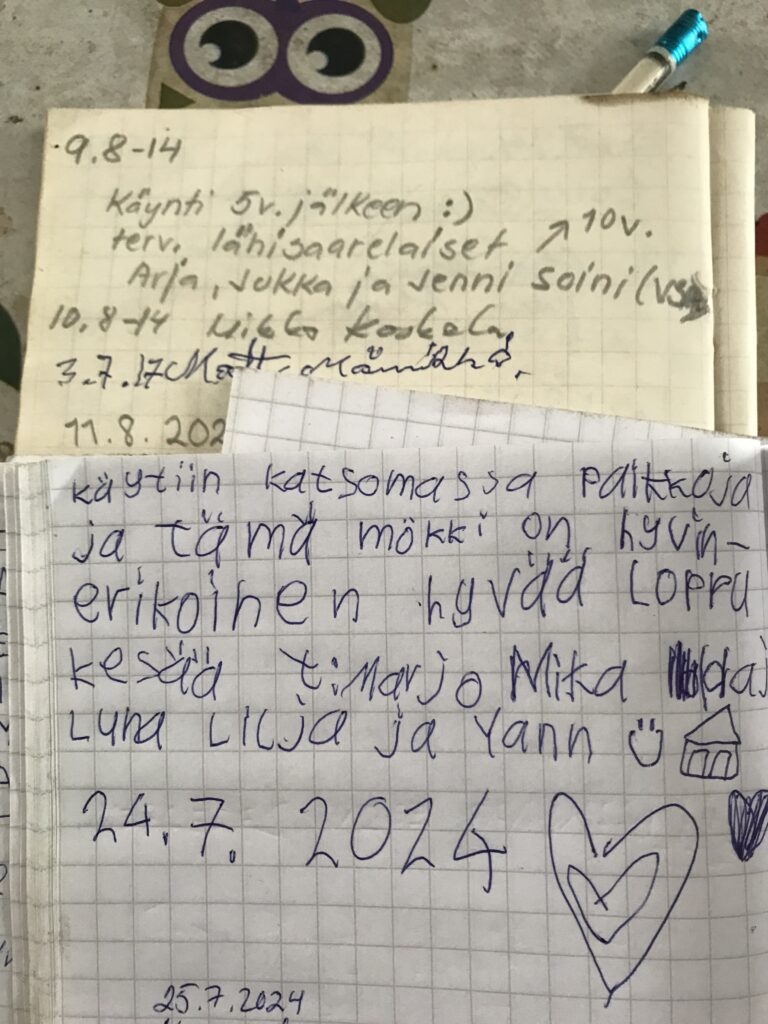 9.8-14
Käynti 5v. jälkeen :)
terv. lähisaarelaiset ↗ 10v.
Arja, Jukka ja Jenni Soini (
10.8-14 Mikko Koskela
3.7.17 Matti
11.8.202
käytiin katsomassa paikkoja
ja tämä mökki on hyvin-
erikoinen hyvää Loppu
kesää t:Marjo Mika
Luna Lilja ja Yann
24.7. 2024
25.7.2024